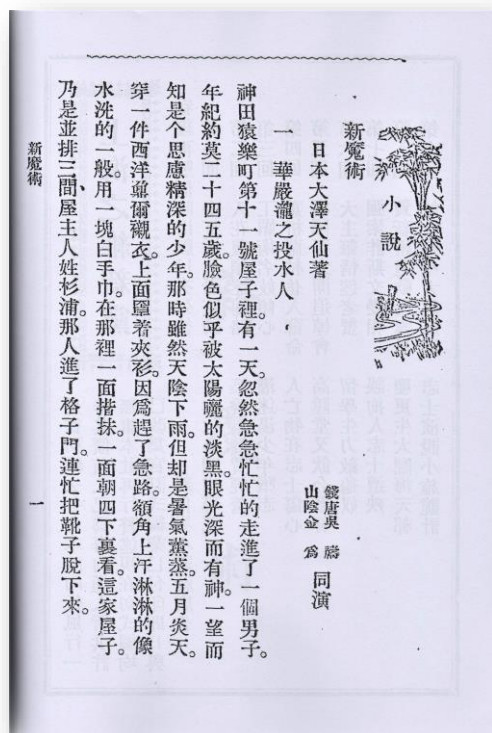 小說
新魔術
日本大澤天仙著
錢唐吳檮
山陰金為
同演
一 華嚴瀧之投水人
神田猿樂町第十一號屋子裡。有一天。忽然急急忙忙的走進了一個男子。
年紀約莫二十四五歲。臉色似乎被太陽曬的淡黑。眼光深而有神。一望而
知是个思慮精深的少年。那時雖然天陰下雨。但却是暑氣薰蒸。五月炎天。
穿一件西洋爾襯衣。上面罩着夾衫。因爲趕了急路。額角上汗淋淋的像
水洗的一般。用一塊白手巾。在那裡一面揩抹。一面朝四下裏看。這家屋子。
乃是並排三間。屋主人姓杉浦。那人進了格子門。連忙把靴子脫下來。
新魔術
一